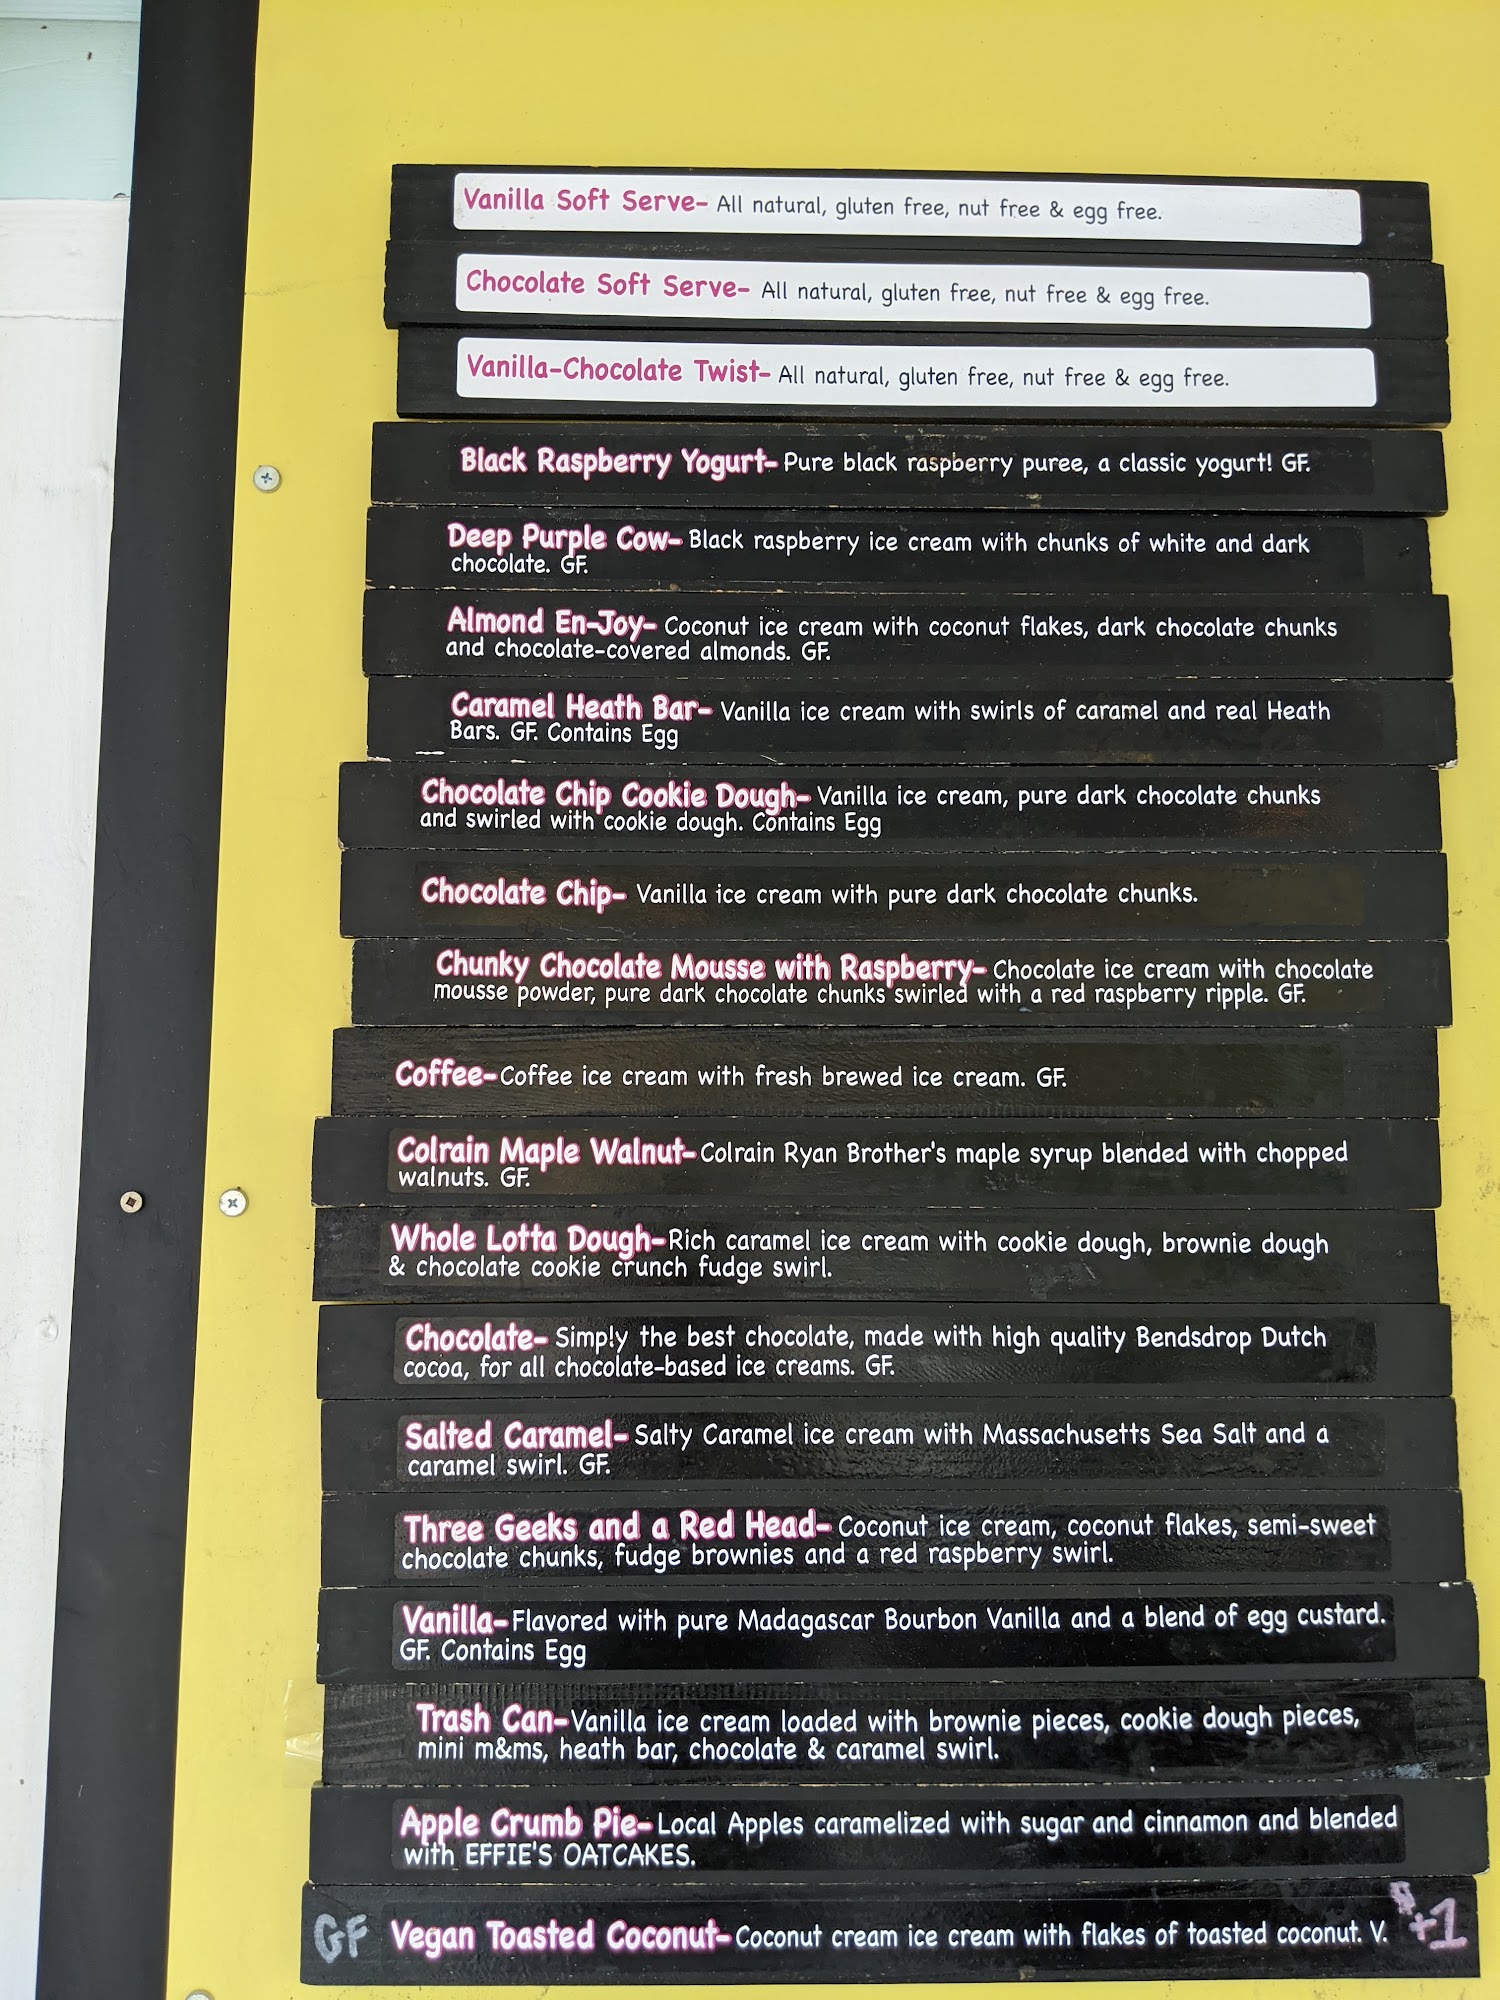 Vanilla Soft Serve- All natural, gluten free, nut free & egg free.
Chocolate Soft Serve- All natural, gluten free, nut free & egg free.
Vanilla-Chocolate Twist- All natural, gluten free, nut free & egg free.
Black Raspberry Yogurt- Pure black raspberry puree, a classic yogurt! GF.
Deep Purple Cow- Black raspberry ice cream with chunks of white and dark
chocolate. GF.
Almond En-Joy- Coconut ice cream with coconut flakes, dark chocolate chunks
and chocolate-covered almonds. GF.
Caramel Heath Bar- Vanilla ice cream with swirls of caramel and real Heath
Bars. GF. Contains Egg
Chocolate Chip Cookie Dough- Vanilla ice cream, pure dark chocolate chunks
and swirled with cookie dough. Contains Egg
Chocolate Chip- Vanilla ice cream with pure dark chocolate chunks.
Chunky Chocolate Mousse with Raspberry- Chocolate ice cream with chocolate
mousse powder, pure dark chocolate chunks swirled with a red raspberry ripple. GF.
Coffee- Coffee ice cream with fresh brewed ice cream. GF.
Colrain Maple Walnut- Colrain Ryan Brother's maple syrup blended with chopped
walnuts. GF.
Whole Lotta Dough- Rich caramel ice cream with cookie dough, brownie dough
& chocolate cookie crunch fudge swirl.
Chocolate- Simply the best chocolate, made with high quality Bendsdrop Dutch
cocoa, for all chocolate-based ice creams. GF.
Salted Caramel- Salty Caramel ice cream with Massachusetts Sea Salt and a
caramel swirl. GF.
Three Geeks and a Red Head- Coconut ice cream, coconut flakes, semi-sweet
chocolate chunks, fudge brownies and a red raspberry swirl.
Vanilla- Flavored with pure Madagascar Bourbon Vanilla and a blend of egg custard.
GF. Contains Egg
Trash Can- Vanilla ice cream loaded with brownie pieces, cookie dough pieces,
mini m&ms, heath bar, chocolate & caramel swirl.
Apple Crumb Pie- Local Apples caramelized with sugar and cinnamon and blended
with EFFIE'S OATCAKES.
GF Vegan Toasted Coconut- Coconut cream ice cream with flakes of toasted coconut. V. $+1